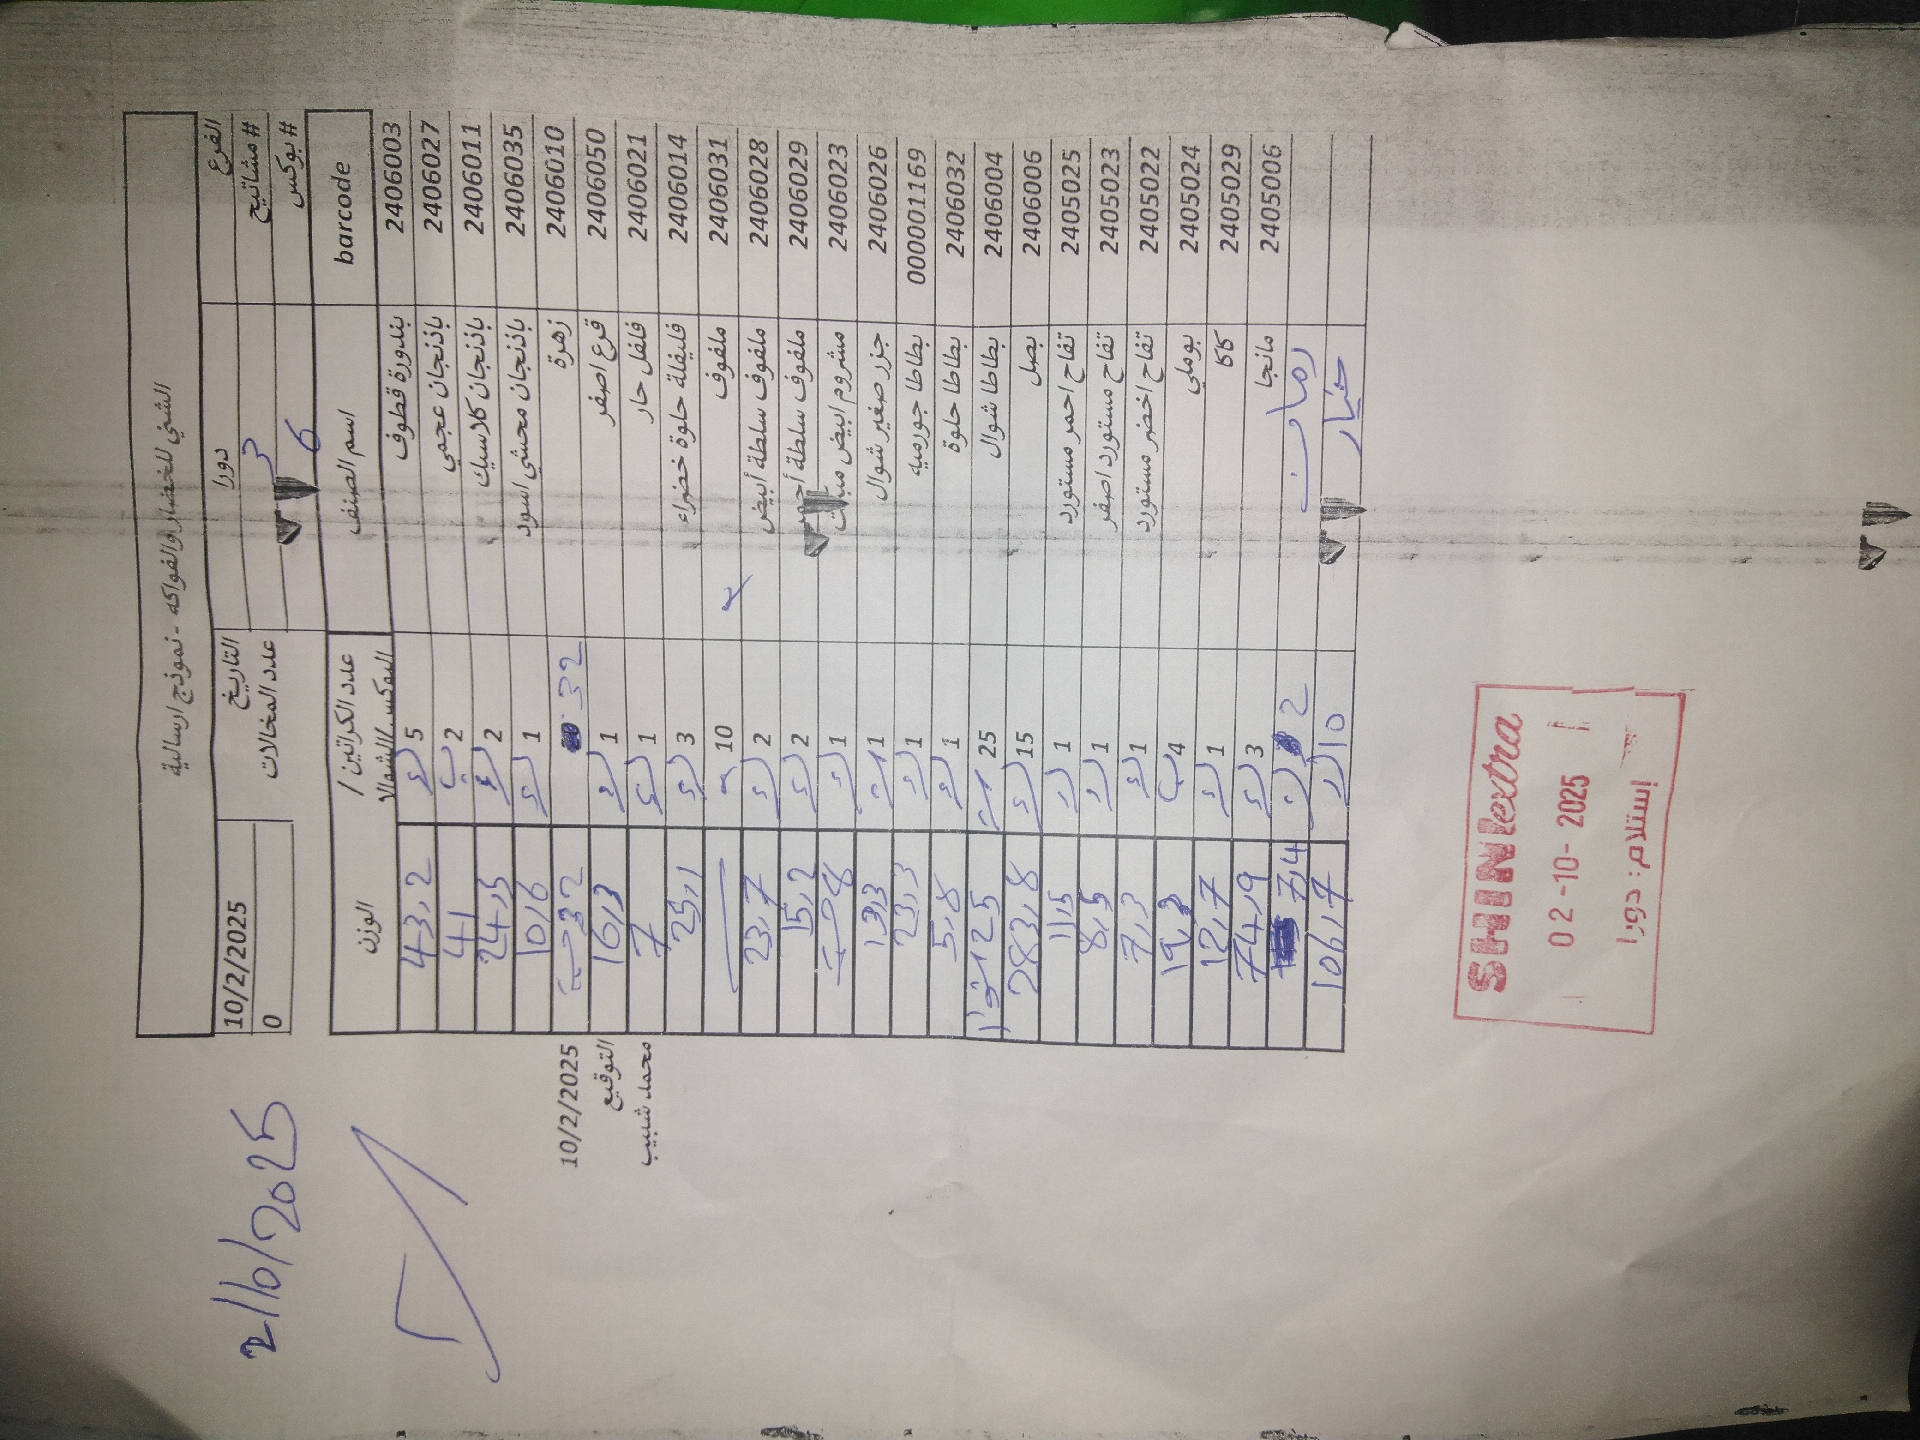 الشني للخضار والفواكه - نموذج ارسالية
الفرع دورا التاريخ 10/2/2025
# مشاتيح 3 عدد المخالات 0
# بوكس 6
barcode اسم الصنف عدد الكراتين / البوكس/الشوال الوزن
2406003 بندورة قطوف 5 43,2
2406027 باذنجان عجمي 2 41
2406011 باذنجان كلاسيك 2 24,5
2406035 باذنجان محشي اسود 1 10,6
2406010 زهرة 32 32
2406050 قرع اصفر 1 16,3
2406021 فلفل حار 1 7
2406014 فليفلة حلوة خضراء 3 25,1
2406031 ملفوف 10
2406028 ملفوف سلطة أبيض 2 23,7
2406029 ملفوف سلطة أحمر 2 15,2
2406023 مشروم ابيض 1 8
2406026 جزر صغير شوال 1 13,3
000001169 بطاطا جورميه 1 23,3
2406032 بطاطا حلوة 1 5,8
2406004 بطاطا شوال 25 25
2406006 بصل 15 283,8
2405025 تفاح احمر مستورد 1 11,5
2405023 تفاح مستورد اصفر 1 8,5
2405022 تفاح اخضر مستورد 1 7,3
2405024 بوملي 4 19,3
2405029 كاكا 1 12,7
2405006 مانجا 3 74,9
رمان 2 7,4
خيار 10 106,7
10/2/2025
التوقيع
محمد شبيب
2/10/2025
SHINI extra
02 -10- 2025
إستلام: دورا